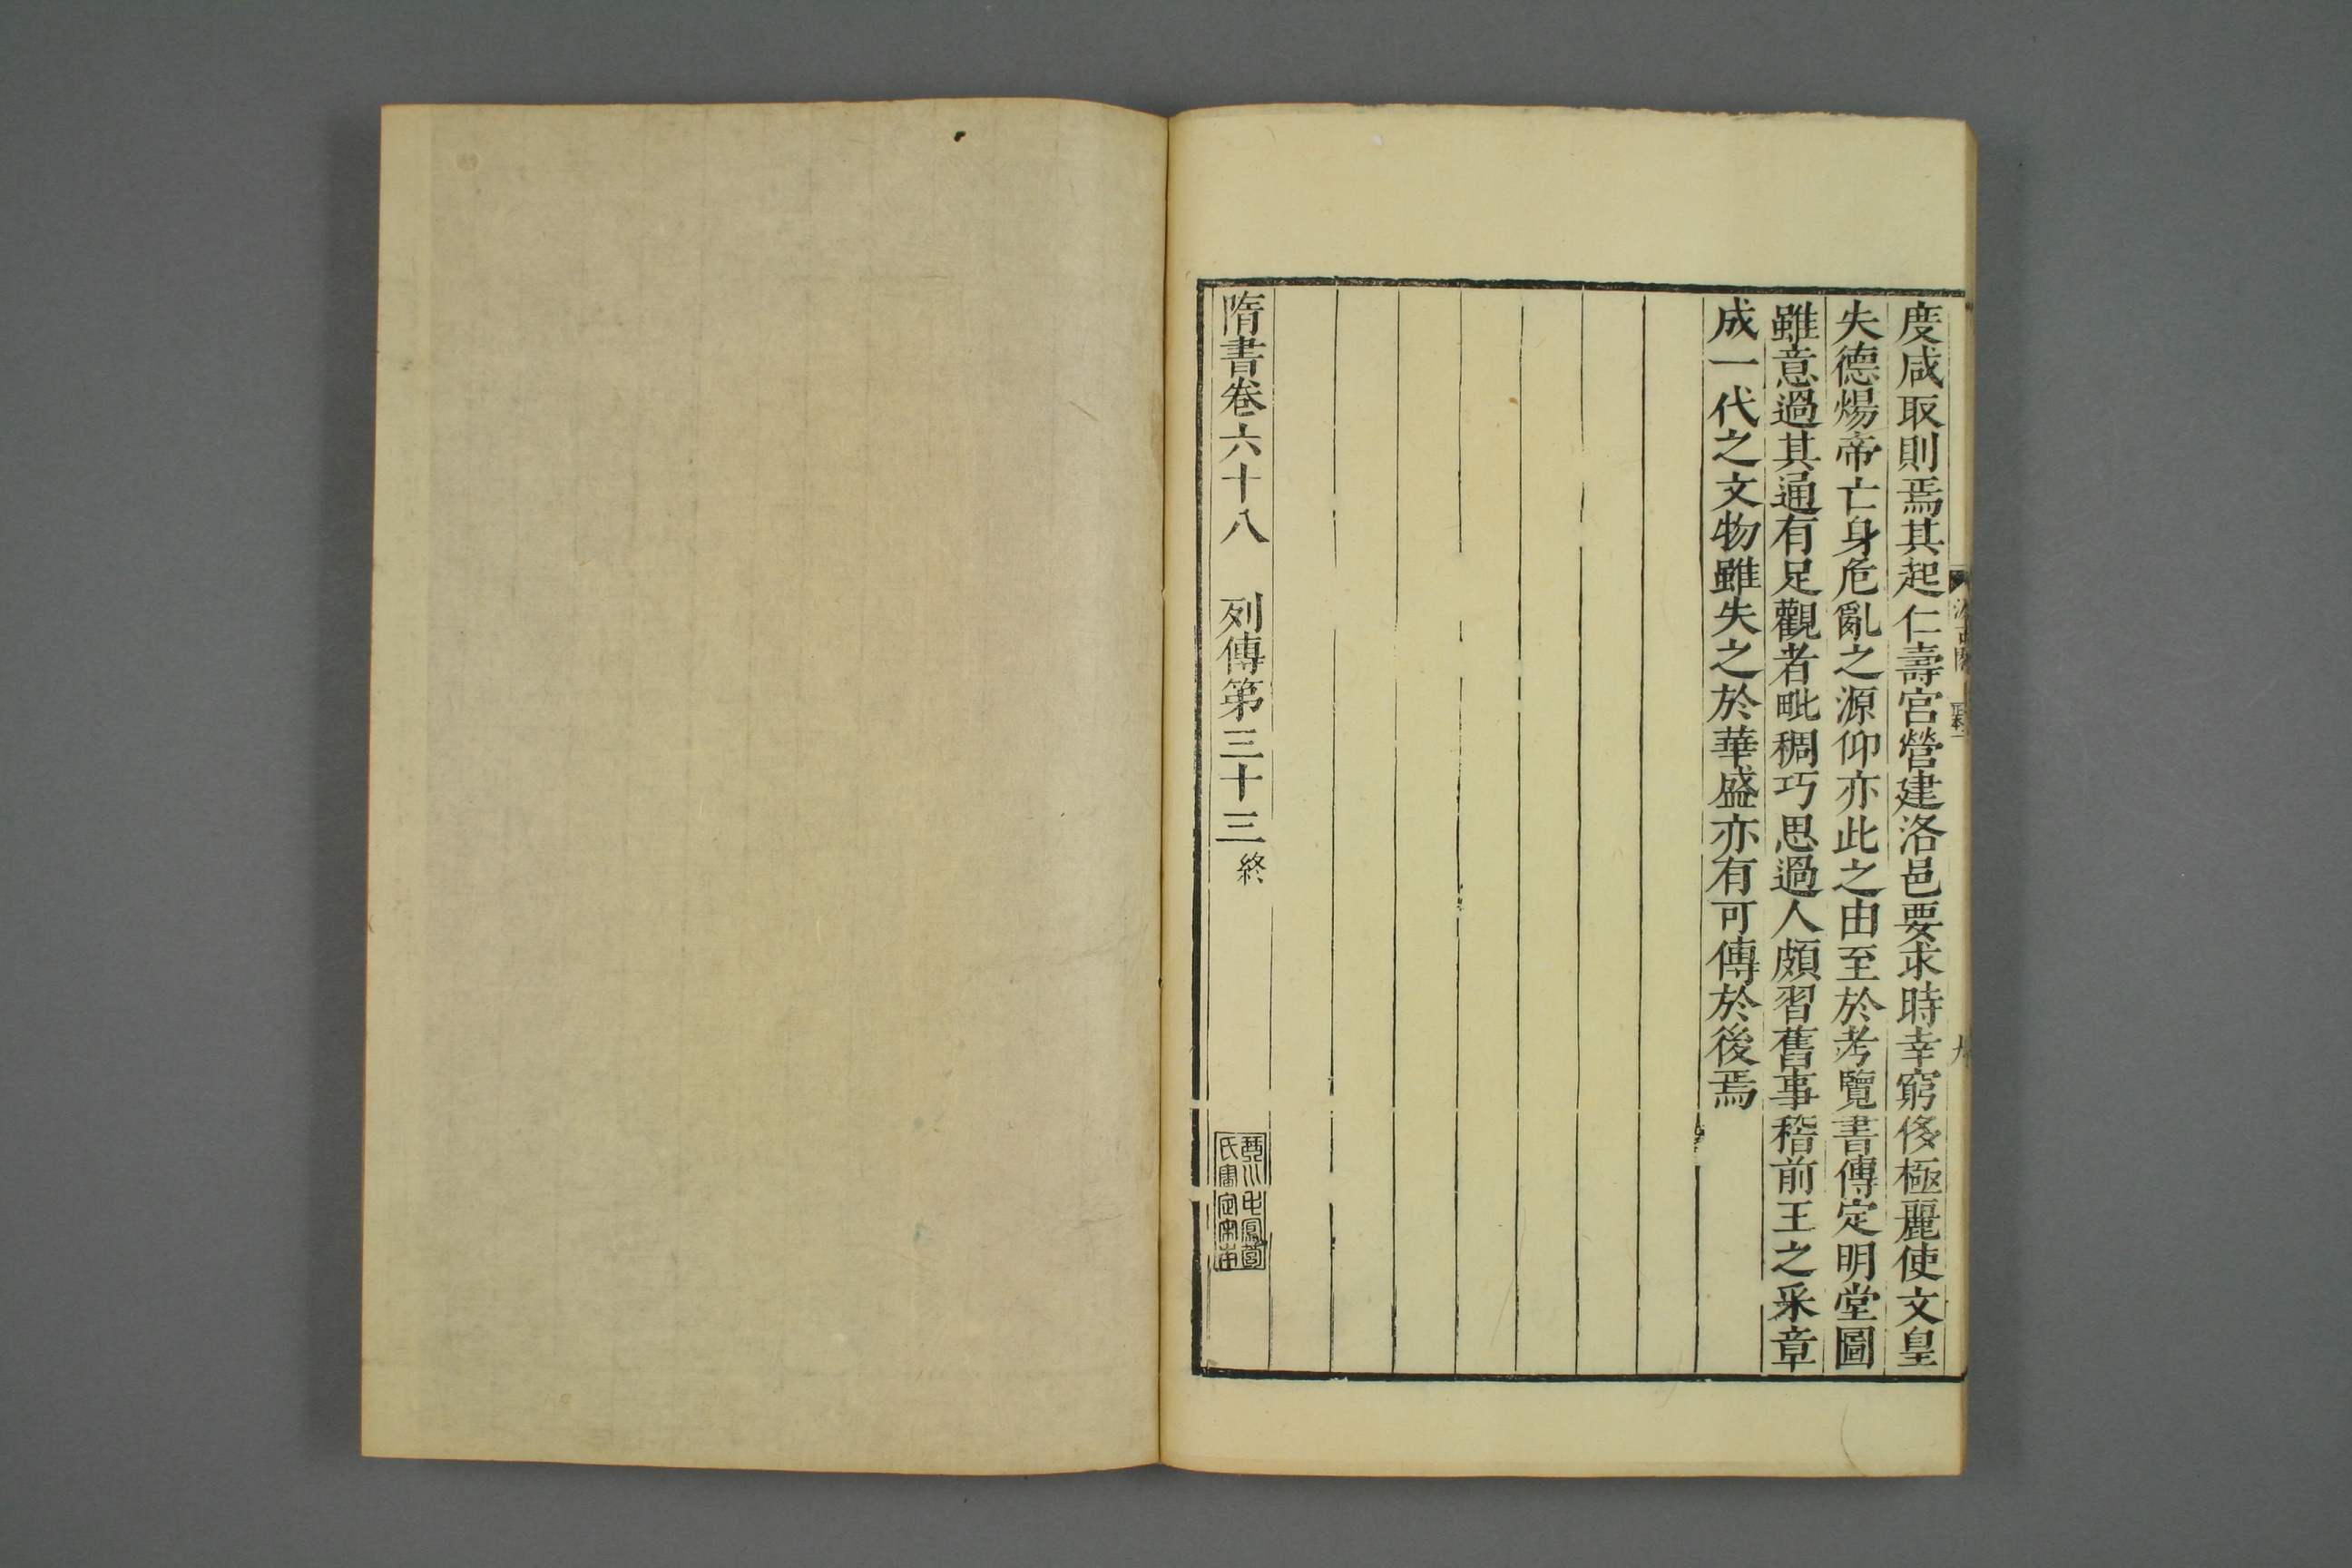 度咸取則焉其起仁壽宮營建洛邑要求時幸窮侈極麗使文皇
失德煬帝亡身危亂之源仰亦此之由至於考覽書傳定明堂圖
雖意過其通有足觀者毗稠巧思過人頗習舊事稽前王之采章
成一代之文物雖失之於華盛亦有可傳於後焉
隋書卷六十八　列傳第三十三終